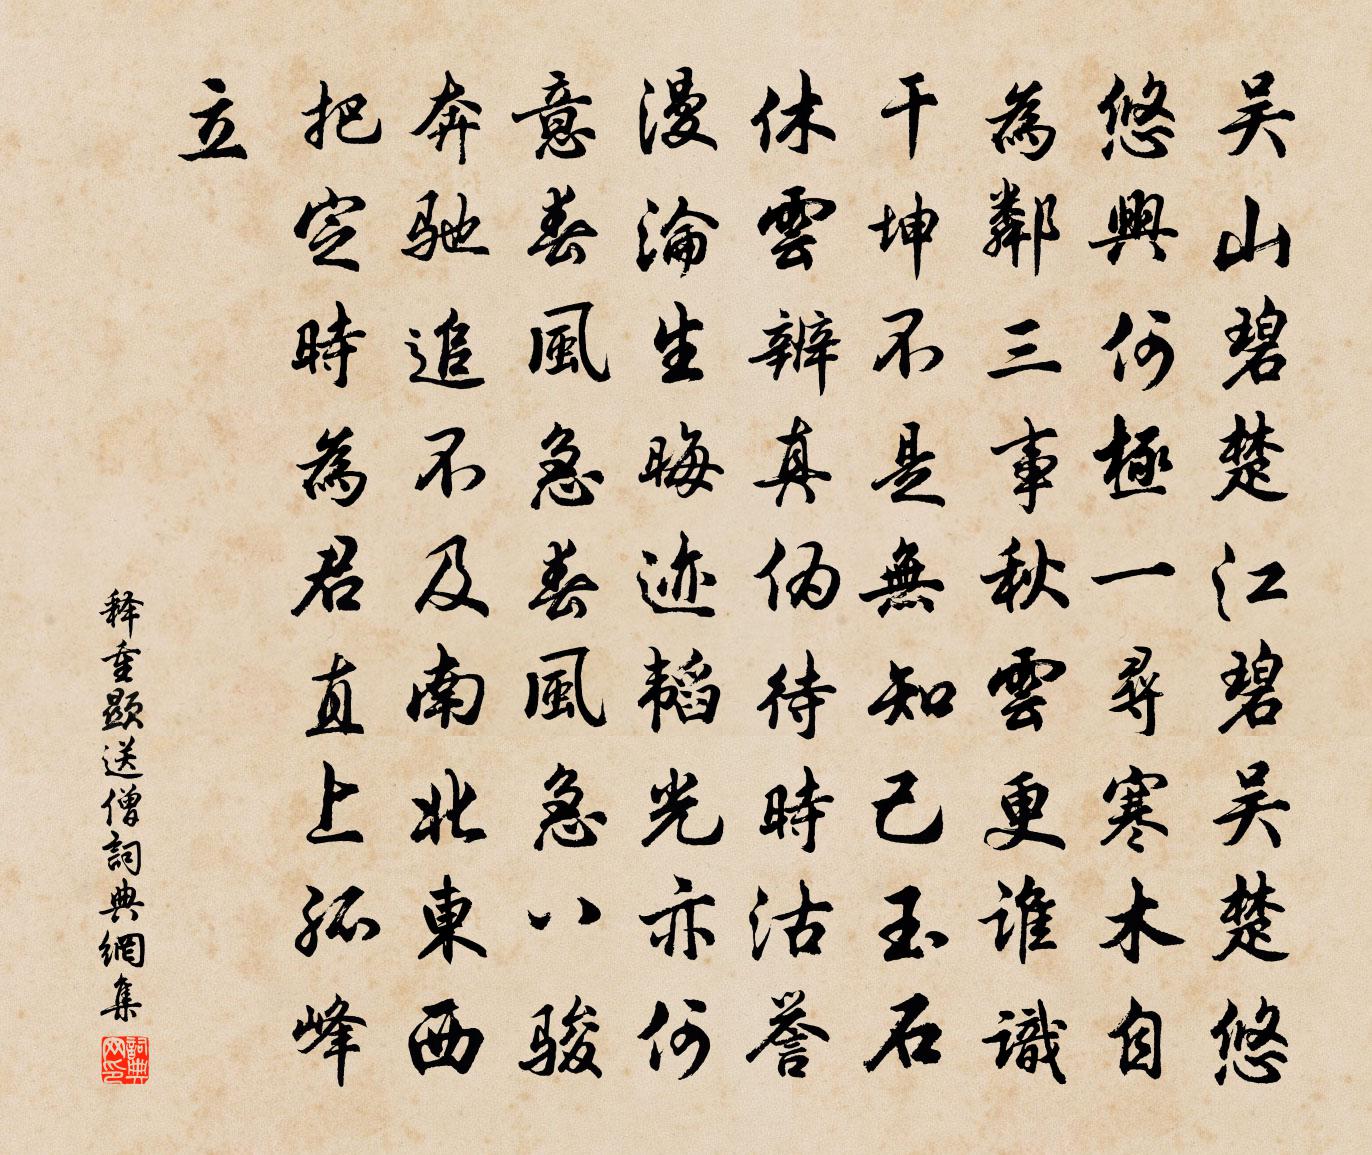 吴山碧楚江碧吴楚悠
悠興何極一尋寒木自
為鄰三事秋雲更誰識
干坤不是無知己玉石
休雲辨真伪待時沽誉
漫淪生晦迹韬光亦何
意春風急春風急八骏
奔驰追不及南北東西
把定時為君直上孤峰
立
释重顯送僧詞典網集
詞典网印